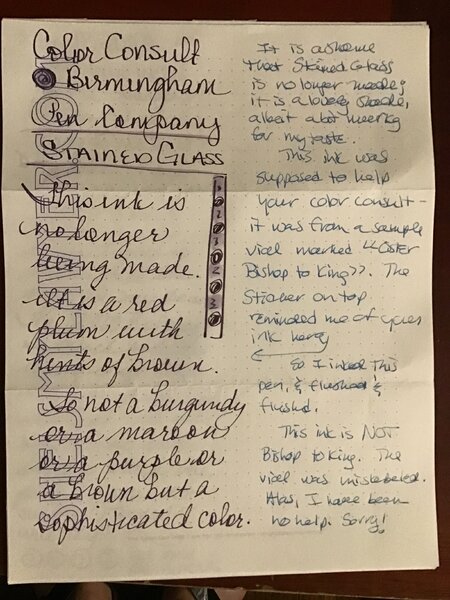 Color Consult
Birmingham
Pen Company
STAINED GLASS
This ink is
no longer
being made.
It is a red
plum with
hints of brown.
So not a burgundy
or a maroon
or a purple or
a brown but a
sophisticated color.
It is a shame
that Stained Glass
is no longer made;
it is a lovely shade,
albeit a bit
for my taste.
This ink was
supposed to help
your color consult -
it was from a sample
vial marked "Oster
Bishop to King". The
Sticker on top
reminded me of your
ink
So I inked this
pen, & flushed &
flushed.
This ink is NOT
Bishop to King. The
vial was mislabeled.
Alas, I have been
no help. Sorry!